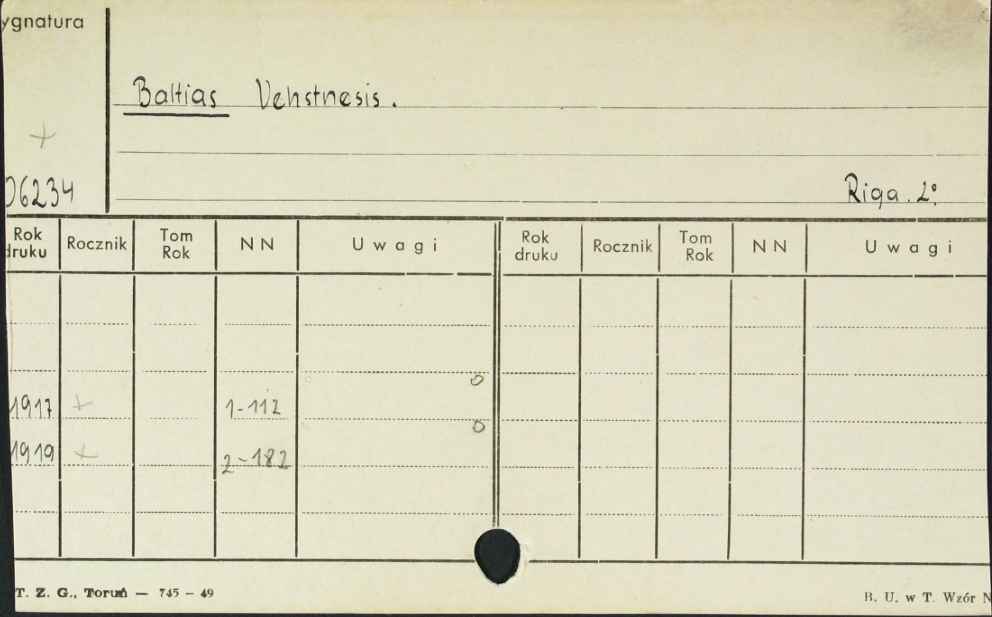 ygnatura
Baltias Vehstnesis.
+
06234
Riga. 2°
Rok druku Rocznik Tom Rok N N U w a g i Rok druku Rocznik Tom Rok N N U w a g i
1917 + 1-112 0
1919 + 2-182 0
T. Z. G., Toruń — 745 – 49
B. U. w T. Wzór N